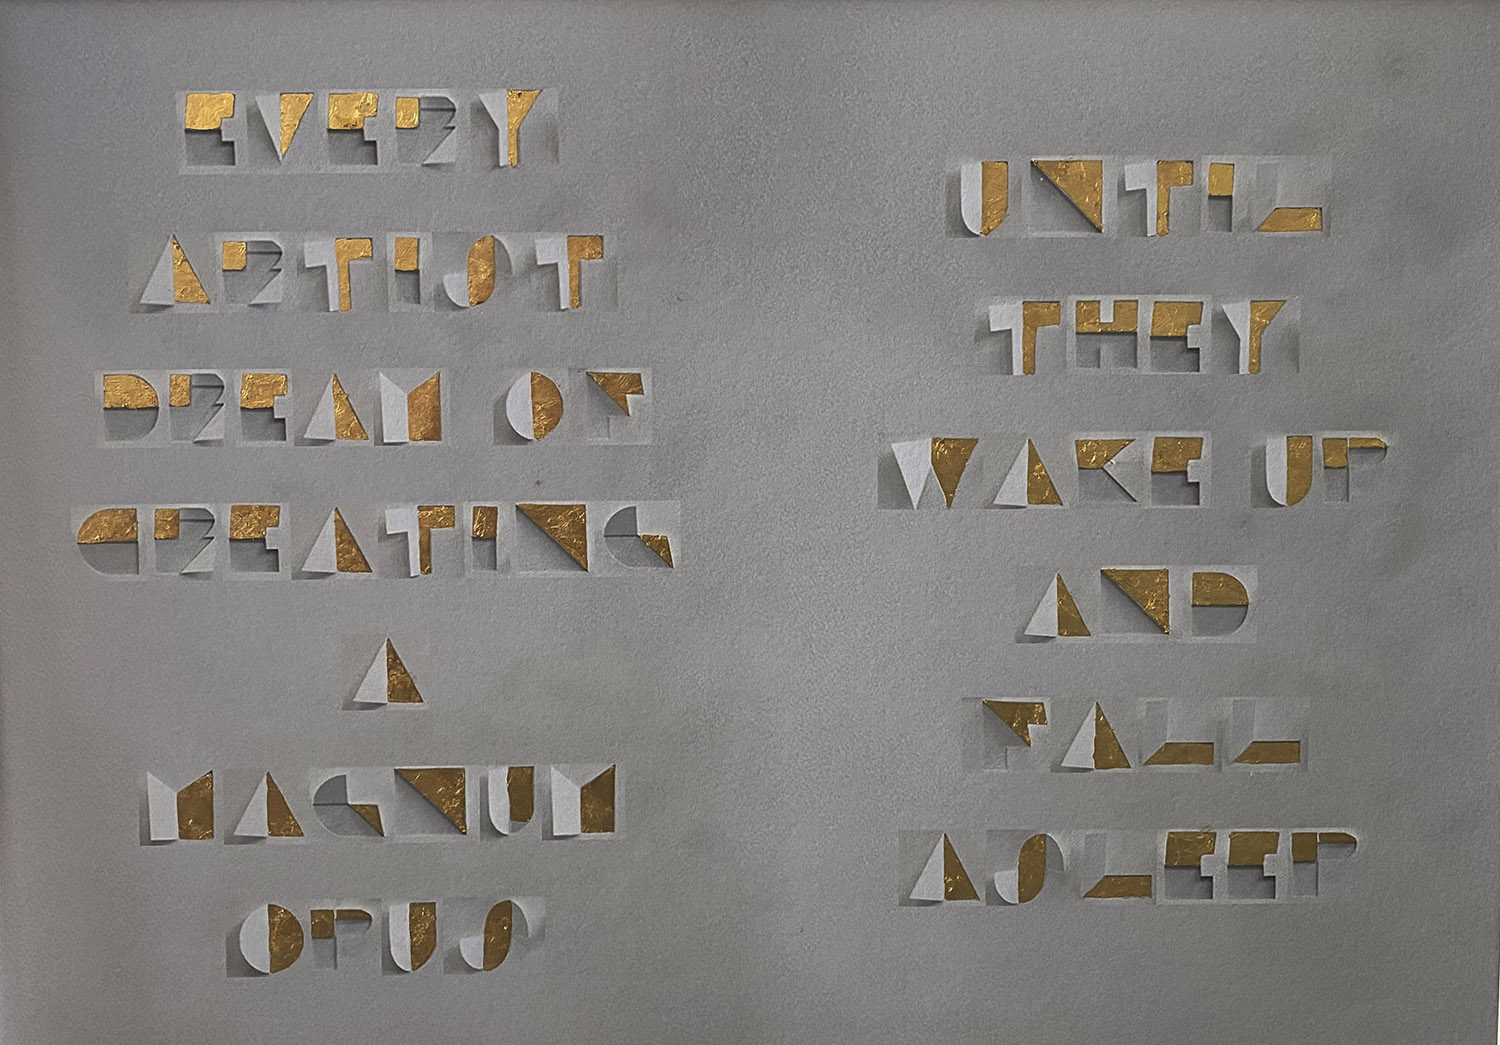 EVERY
ARTIST
DREAM OF
CREATING
A
MAGNUM
OPUS
UNTIL
THEY
WAKE UP
AND
FALL
ASLEEP